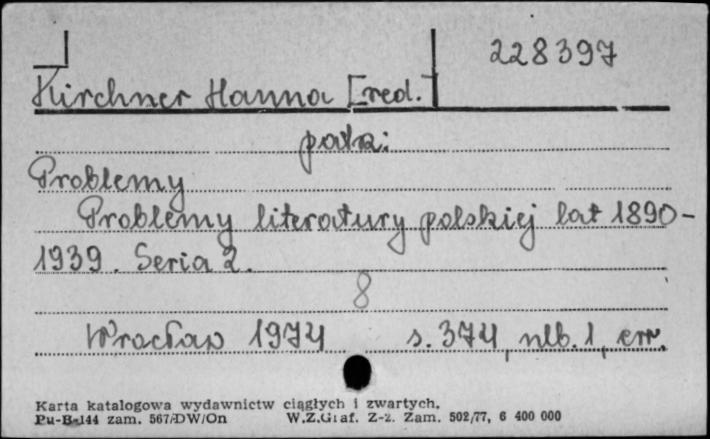 228397
Kirchner Hanna [red.]
patrz:
Problemy
Problemy literatury polskiej lat 1890-
1939. Seria 2.
8
Wrocław 1974 s. 374, nlb. 1, err.
Karta katalogowa wydawnictw ciągłych i zwartych.
Pu-B-144 zam. 567/DW/On W.Z.Graf. Z-z. Zam. 502/77, 6 400 000